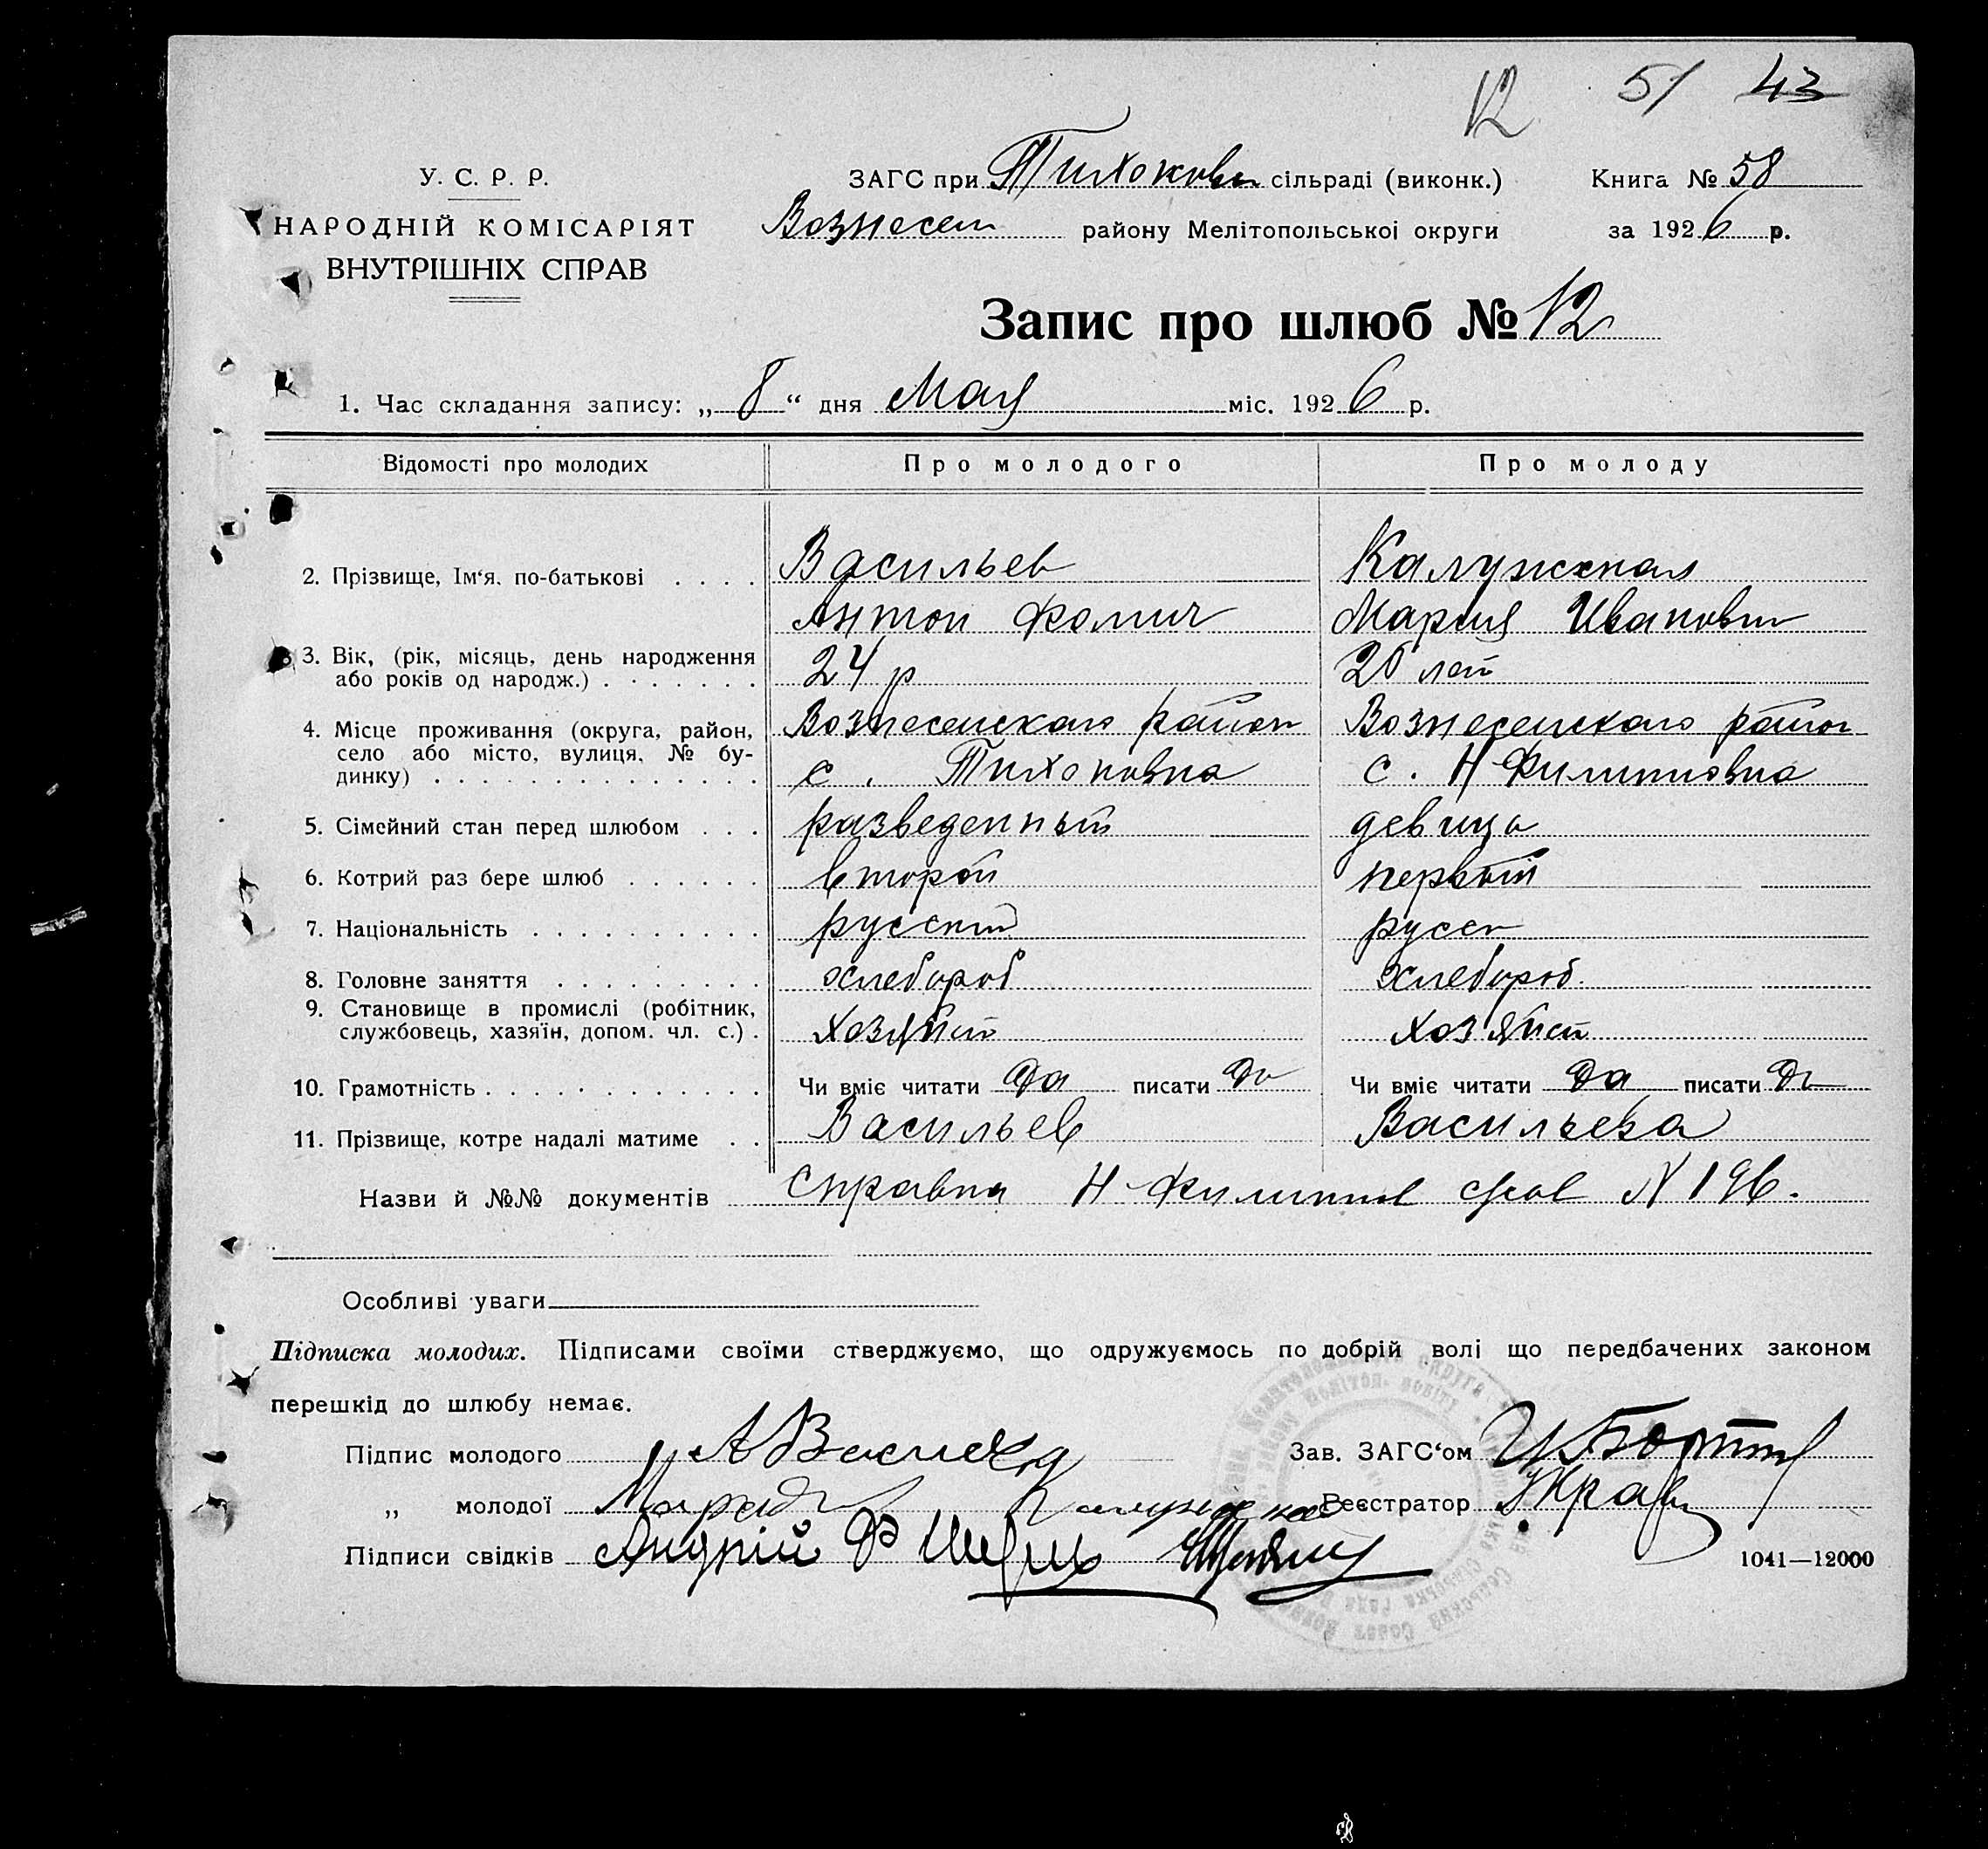 12 51 43
У. С. Р. Р.
НАРОДНІЙ КОМІСАРІЯТ
ВНУТРІШНІХ СПРАВ
ЗАГС при Тихоновск сільраді (виконк.) Книга № 58
Вознесен району Мелітопольської округи за 1926 р.
Запис про шлюб № 12
1. Час складання запису: „ 8 “ дня Мая міс. 1926 р.
Відомості про молодих Про молодого Про молоду
2. Прізвище, Ім‘я, по-батькові . . . . Васильев Калужская
Антон Фомич Мария Ивановн
3. Вік, (рік, місяць, день народження
або років од народж.) . . . . . . . 24 р 20 лет
4. Місце проживання (округа, район,
село або місто, вулиця, № бу-
динку) . . . . . . . . . . . . . .
Вознесенскаго район Вознесенскаго район
с. Тихоновка с. Н Филипповка
5. Сімейний стан перед шлюбом . . . разведенный девица
6. Котрий раз бере шлюб . . . . . . второй первый
7. Національність . . . . . . . . . . русский русск
8. Головне заняття . . . . . . . . . хлебороб хлебороб.
9. Становище в промислі (робітник,
службовець, хазяїн, допом. чл. с.) . хозяйст хозяйст
10. Грамотність . . . . . . . . . . . . Чи вміє читати Да писати Да Чи вміє читати Да писати Да
11. Прізвище, котре надалі матиме . . Васильев Васильева
Назви й №№ документів справка Н-Филиппов N 196.
Особливі уваги
Підписка молодих. Підписами своїми стверджуємо, що одружуємось по добрій волі що передбачених законом
перешкід до шлюбу немає.
Підпис молодого А Зав. ЗАГС‘ом
„ молодої Реєстратор
Підписи свідків Андрій Ф
1041—12000